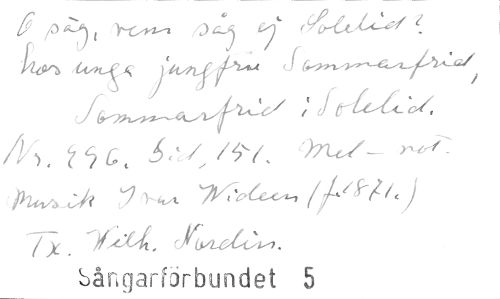 O säg, vem såg ej Solelid?
hos unga jungfru Sommarfrid,
Sommarfrid i Solelid.
Nr. 996. Sid, 151. Mel-not.
Musik Ivar Wideen (f.1871.)
Tx. Wilh. Nordin.
Sångarförbundet 5